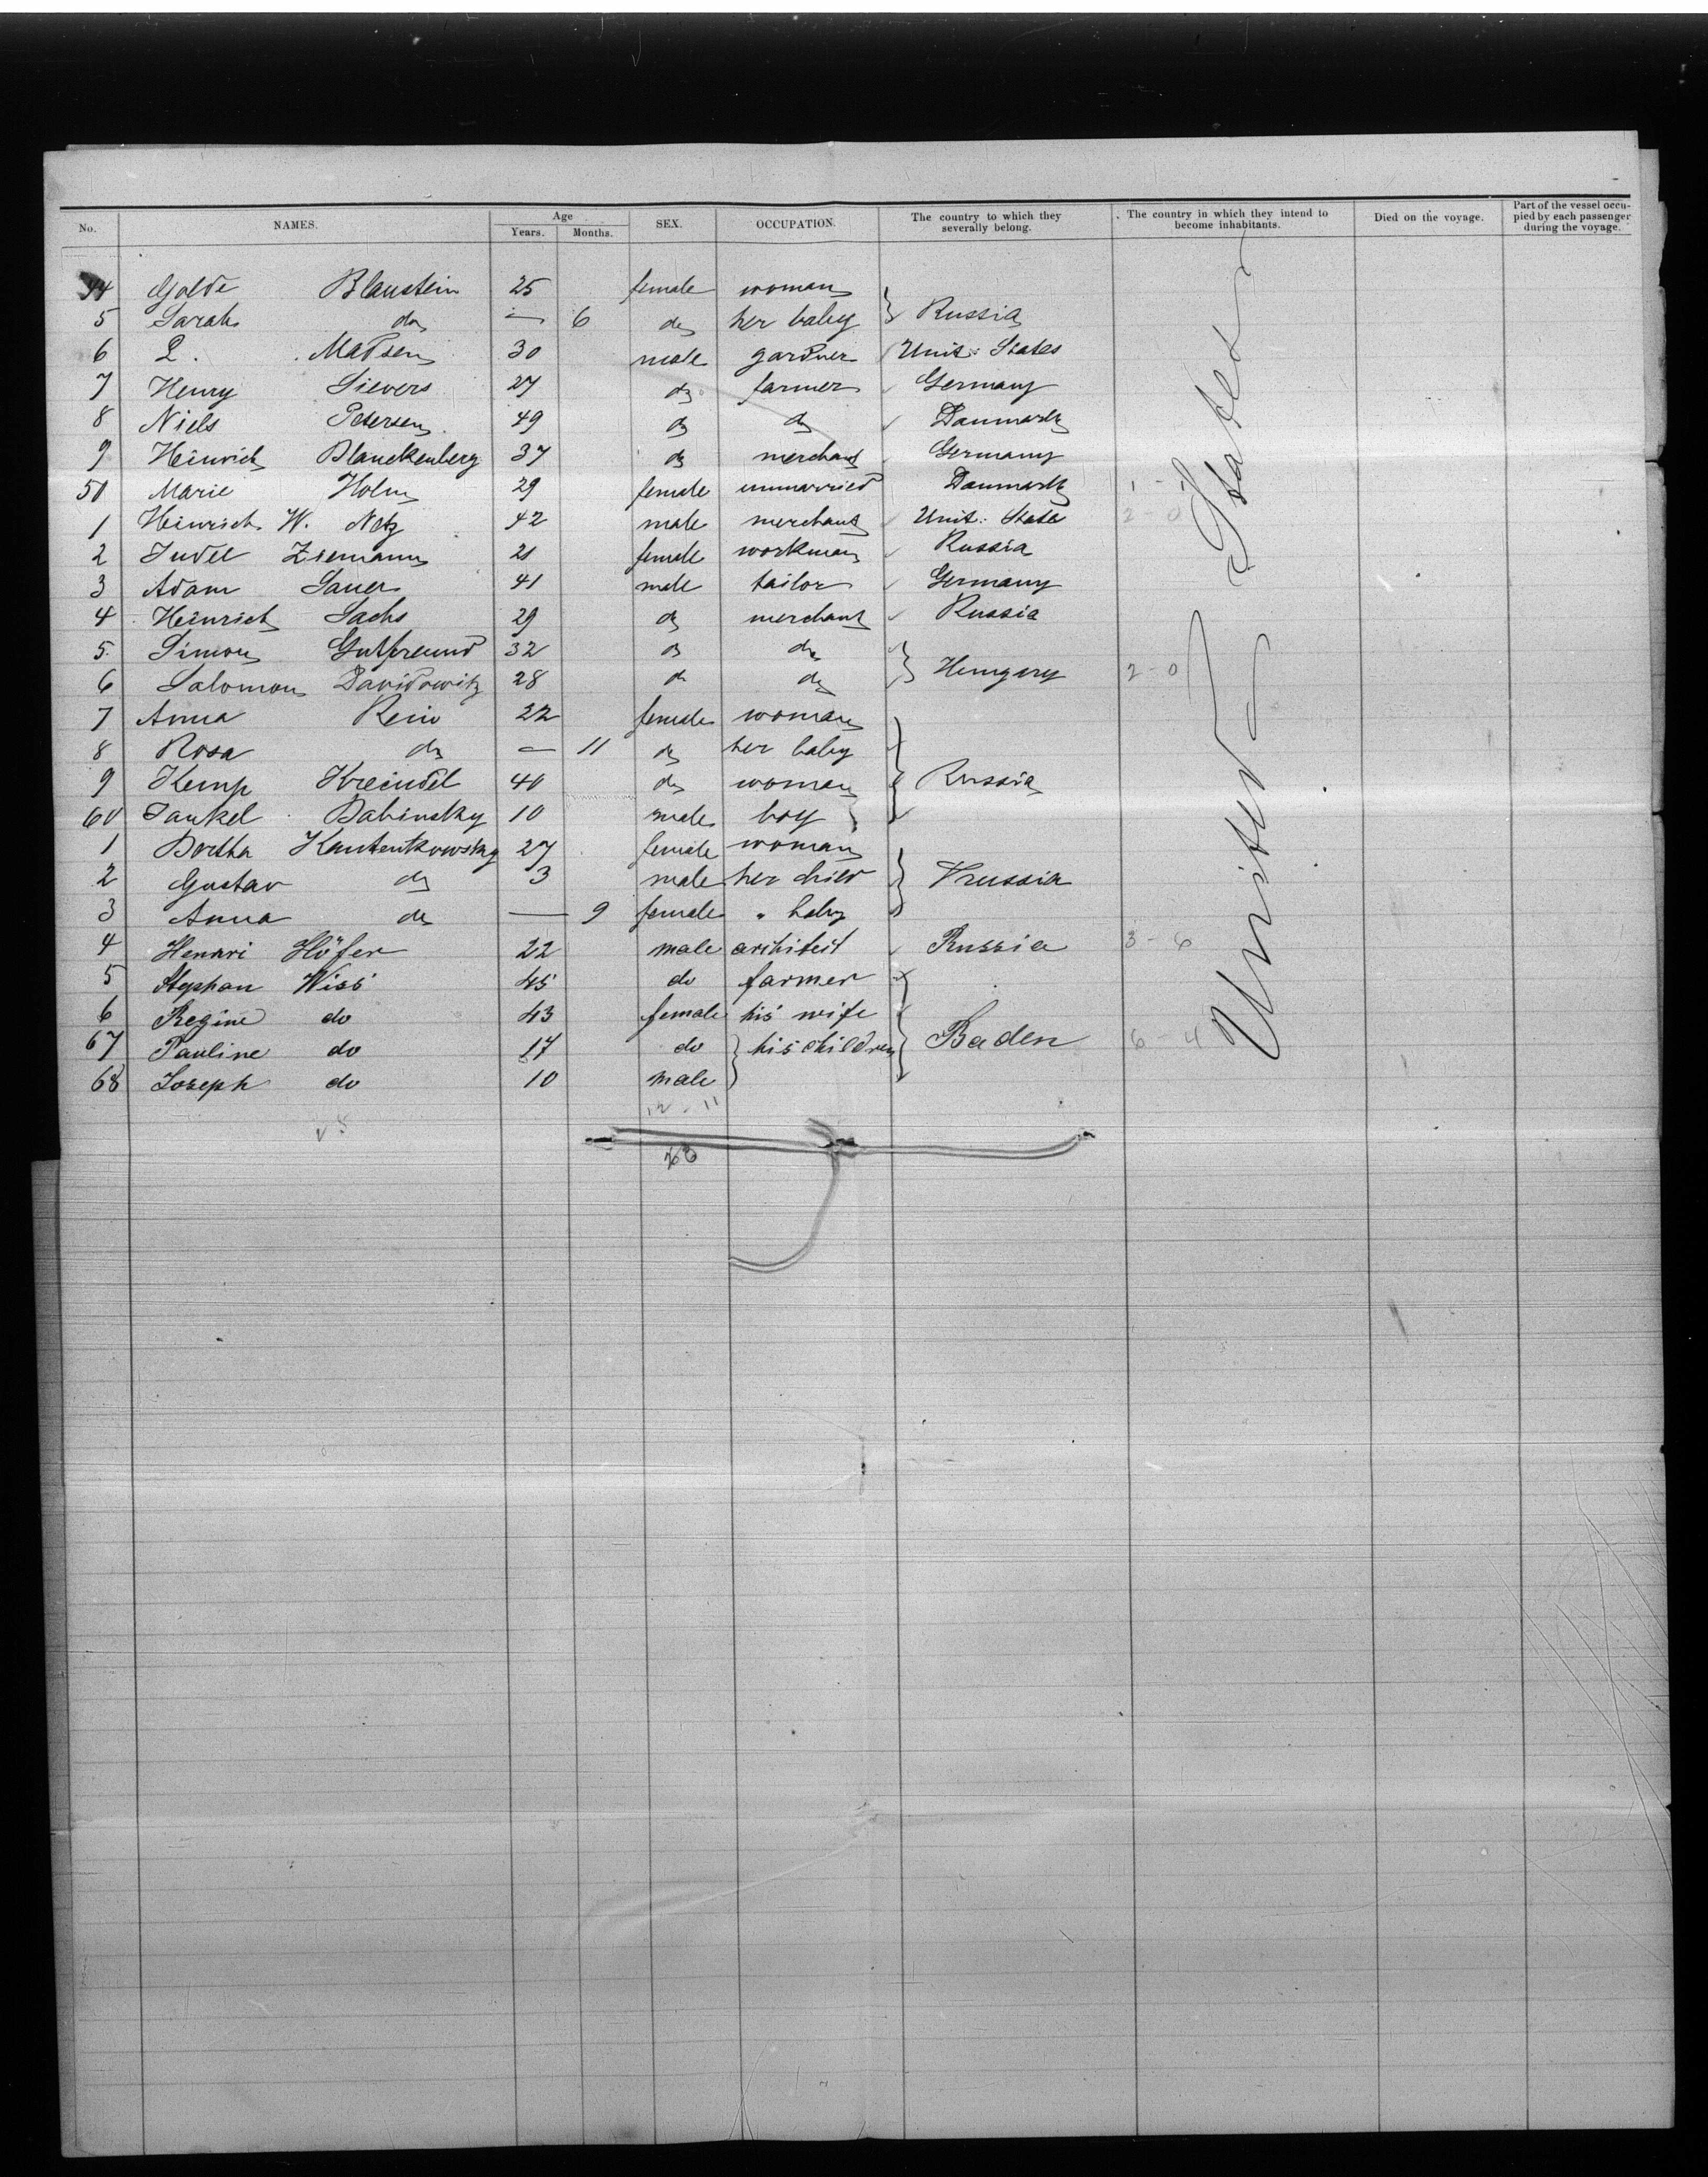 No. NAMES. Age Years. Months. SEX. OCCUPATION. The country to which they severally belong. The country in which they intend to become inhabitants. Died on the voyage. Part of the vessel occupied by each passenger during the voyage.
44 Golde Blaustein 25 female woman } Russia
5 Sarah do — 6 do her baby
6 L. Madsen 30 male gardner Unit: States
7 Henry Sievers 27 do farmer Germany
8 Niels Petersen 49 do do Danmark
9 Heinrich Blanckenberg 37 do merchant Germany
50 Marie Holm 29 female unmarried Danmark
1 Heinrich W. Netz 42 male merchant Unit: State 2-0
2 Judel Ziemann 21 female workman Russia
3 Adam Sauer 41 male tailor Germany
4 Heinrich Sachs 29 do merchant Russia
5 Simon Gutfreund 32 do do
6 Salomon Davidowitz 28 do do } Hungary 2-0
7 Anna Rein 22 female woman
8 Rosa do — 11 do her baby
9 Kemp Kreindel 40 do woman } Russia
60 Jankel Dabinsky 10 male boy
1 Bertha 27 female woman
2 Gustav do 3 male her child } Prussia
3 Anna do — 9 female " baby
4 Henri Höfer 22 male architect Russia 3-6
5 Stephan Wiss 45 do farmer
6 Regine do 43 female his wife
67 Pauline do 17 do } his children } Baden 6-4
68 Joseph do 10 male
12-11
United States